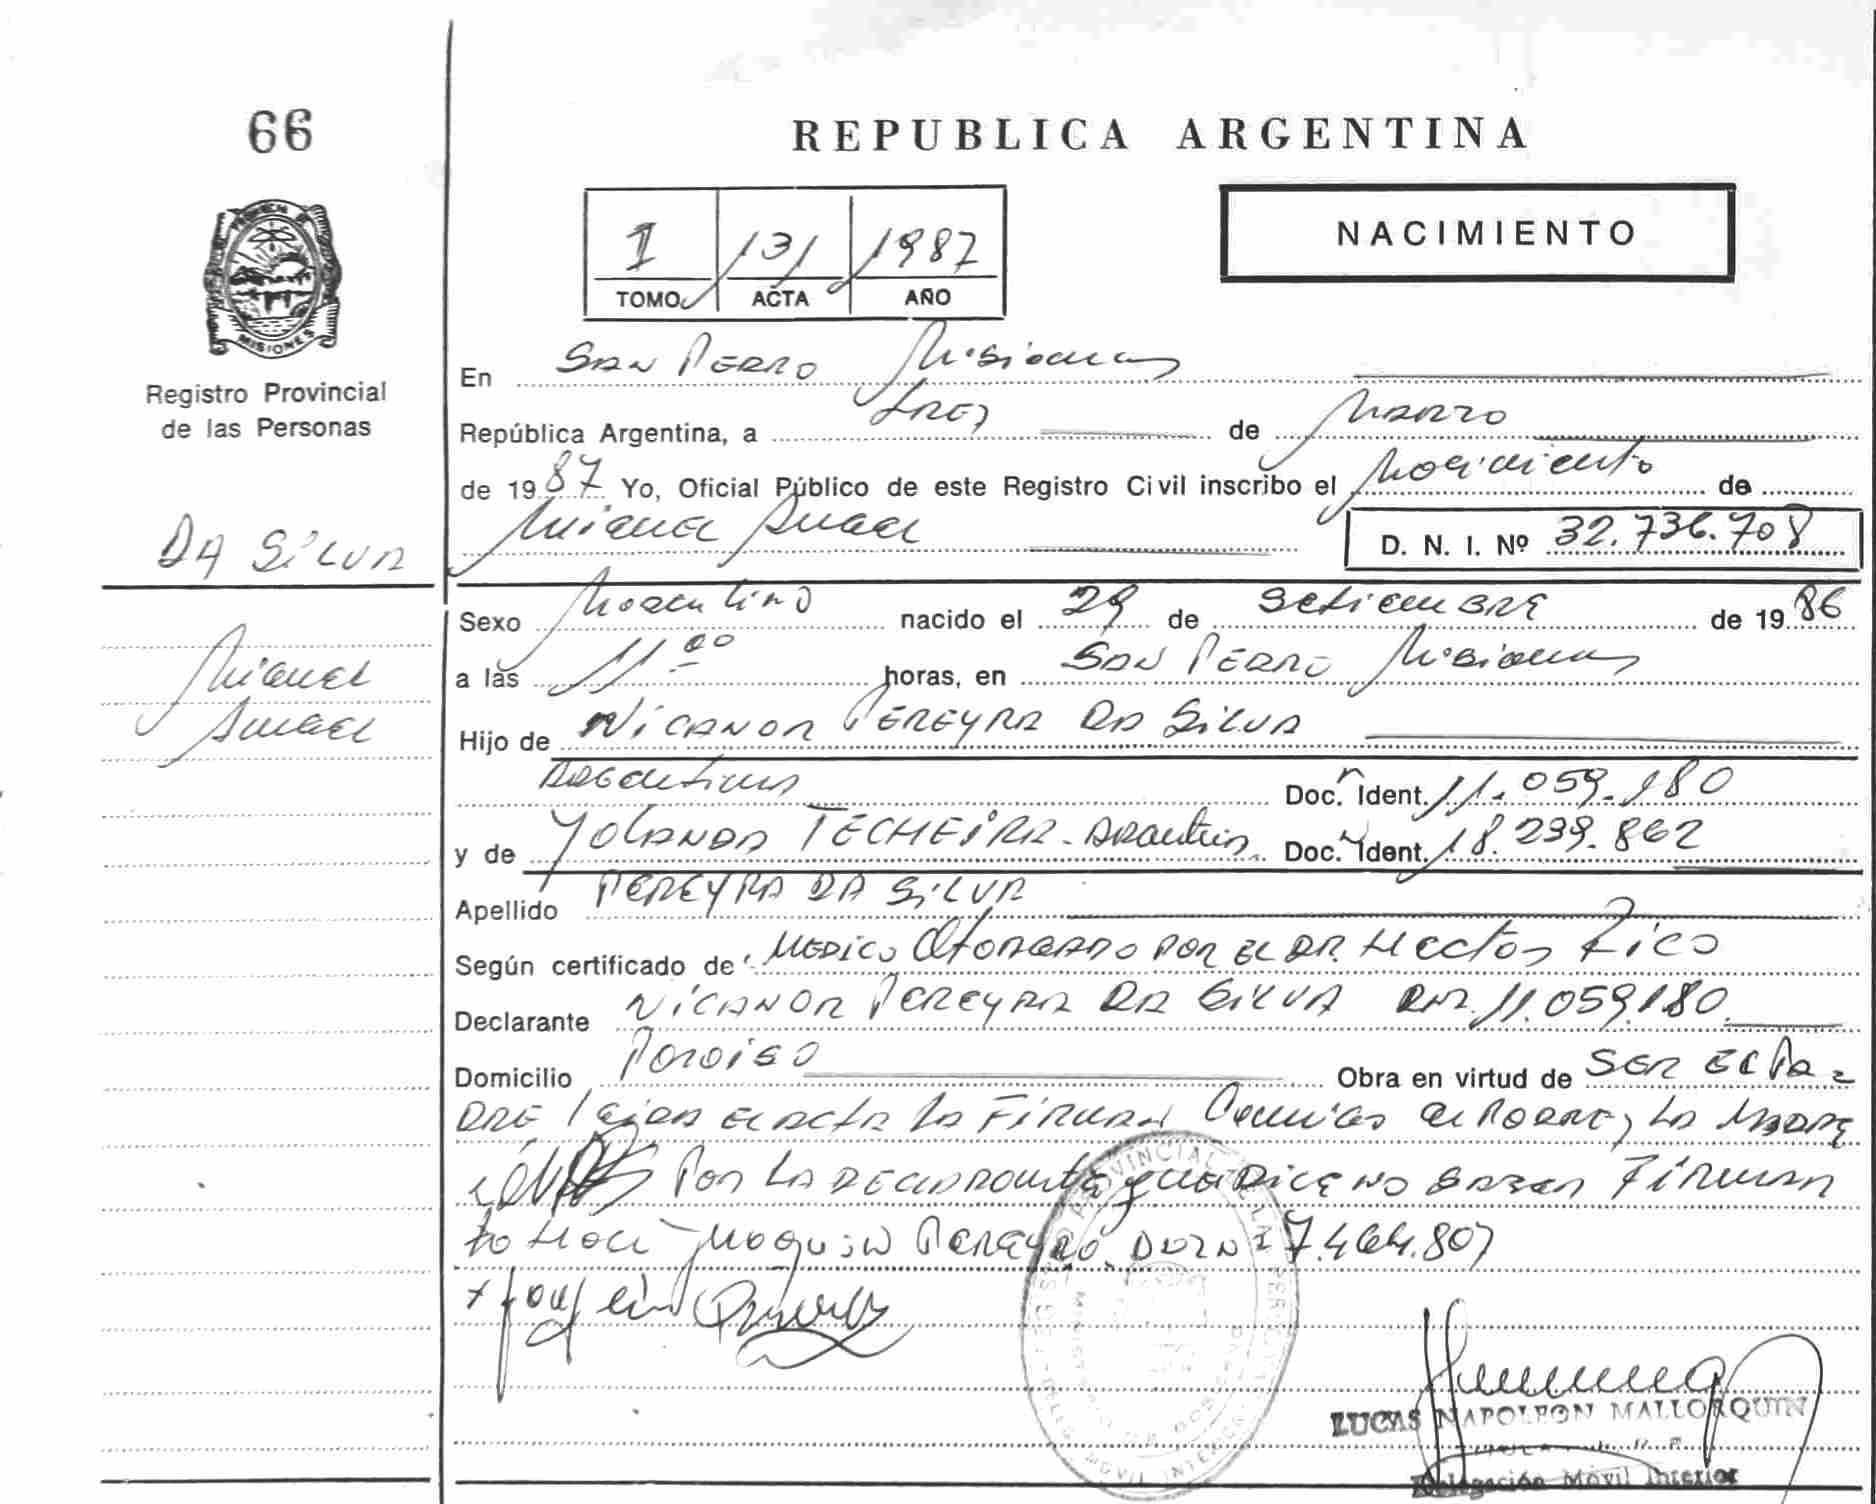 66
REPUBLICA ARGENTINA
NACIMIENTO
I 131 1987
TOMO ACTA AÑO
MISIONES
Registro Provincial
de las Personas
En San Pedro Misiones
República Argentina, a tres de Marzo
de 1987 Yo, Oficial Público de este Registro Civil inscribo el Nacimiento de
Miguel Angel D. N. I. Nº 32.736.708
DA SILVA
Miguel
Angel
Sexo Masculino nacido el 29 de Setiembre de 1986
a las 11 00 horas, en San Pedro Misiones
Hijo de Nicanor Pereyra Da Silva
Argentino Doc. Ident. 11.059.180
y de Yolanda Techeira - Argentina Doc. Ident. 18.239.862
Apellido Pereyra Da Silva
Según certificado de Medico Otorgado por el Dr. Hector Rico
Declarante Nicanor Pereyra Da Silva DNI. 11.059.180
Domicilio Paraiso Obra en virtud de Ser el Pa-
dre el acta la Firman el Padre, la Madre
Por la que Dice no Saber Firmar
lo Hace Joaquin Pereyra 7.464.807
LUCAS NAPOLEON MALLORQUIN
Delegación Móvil Interior